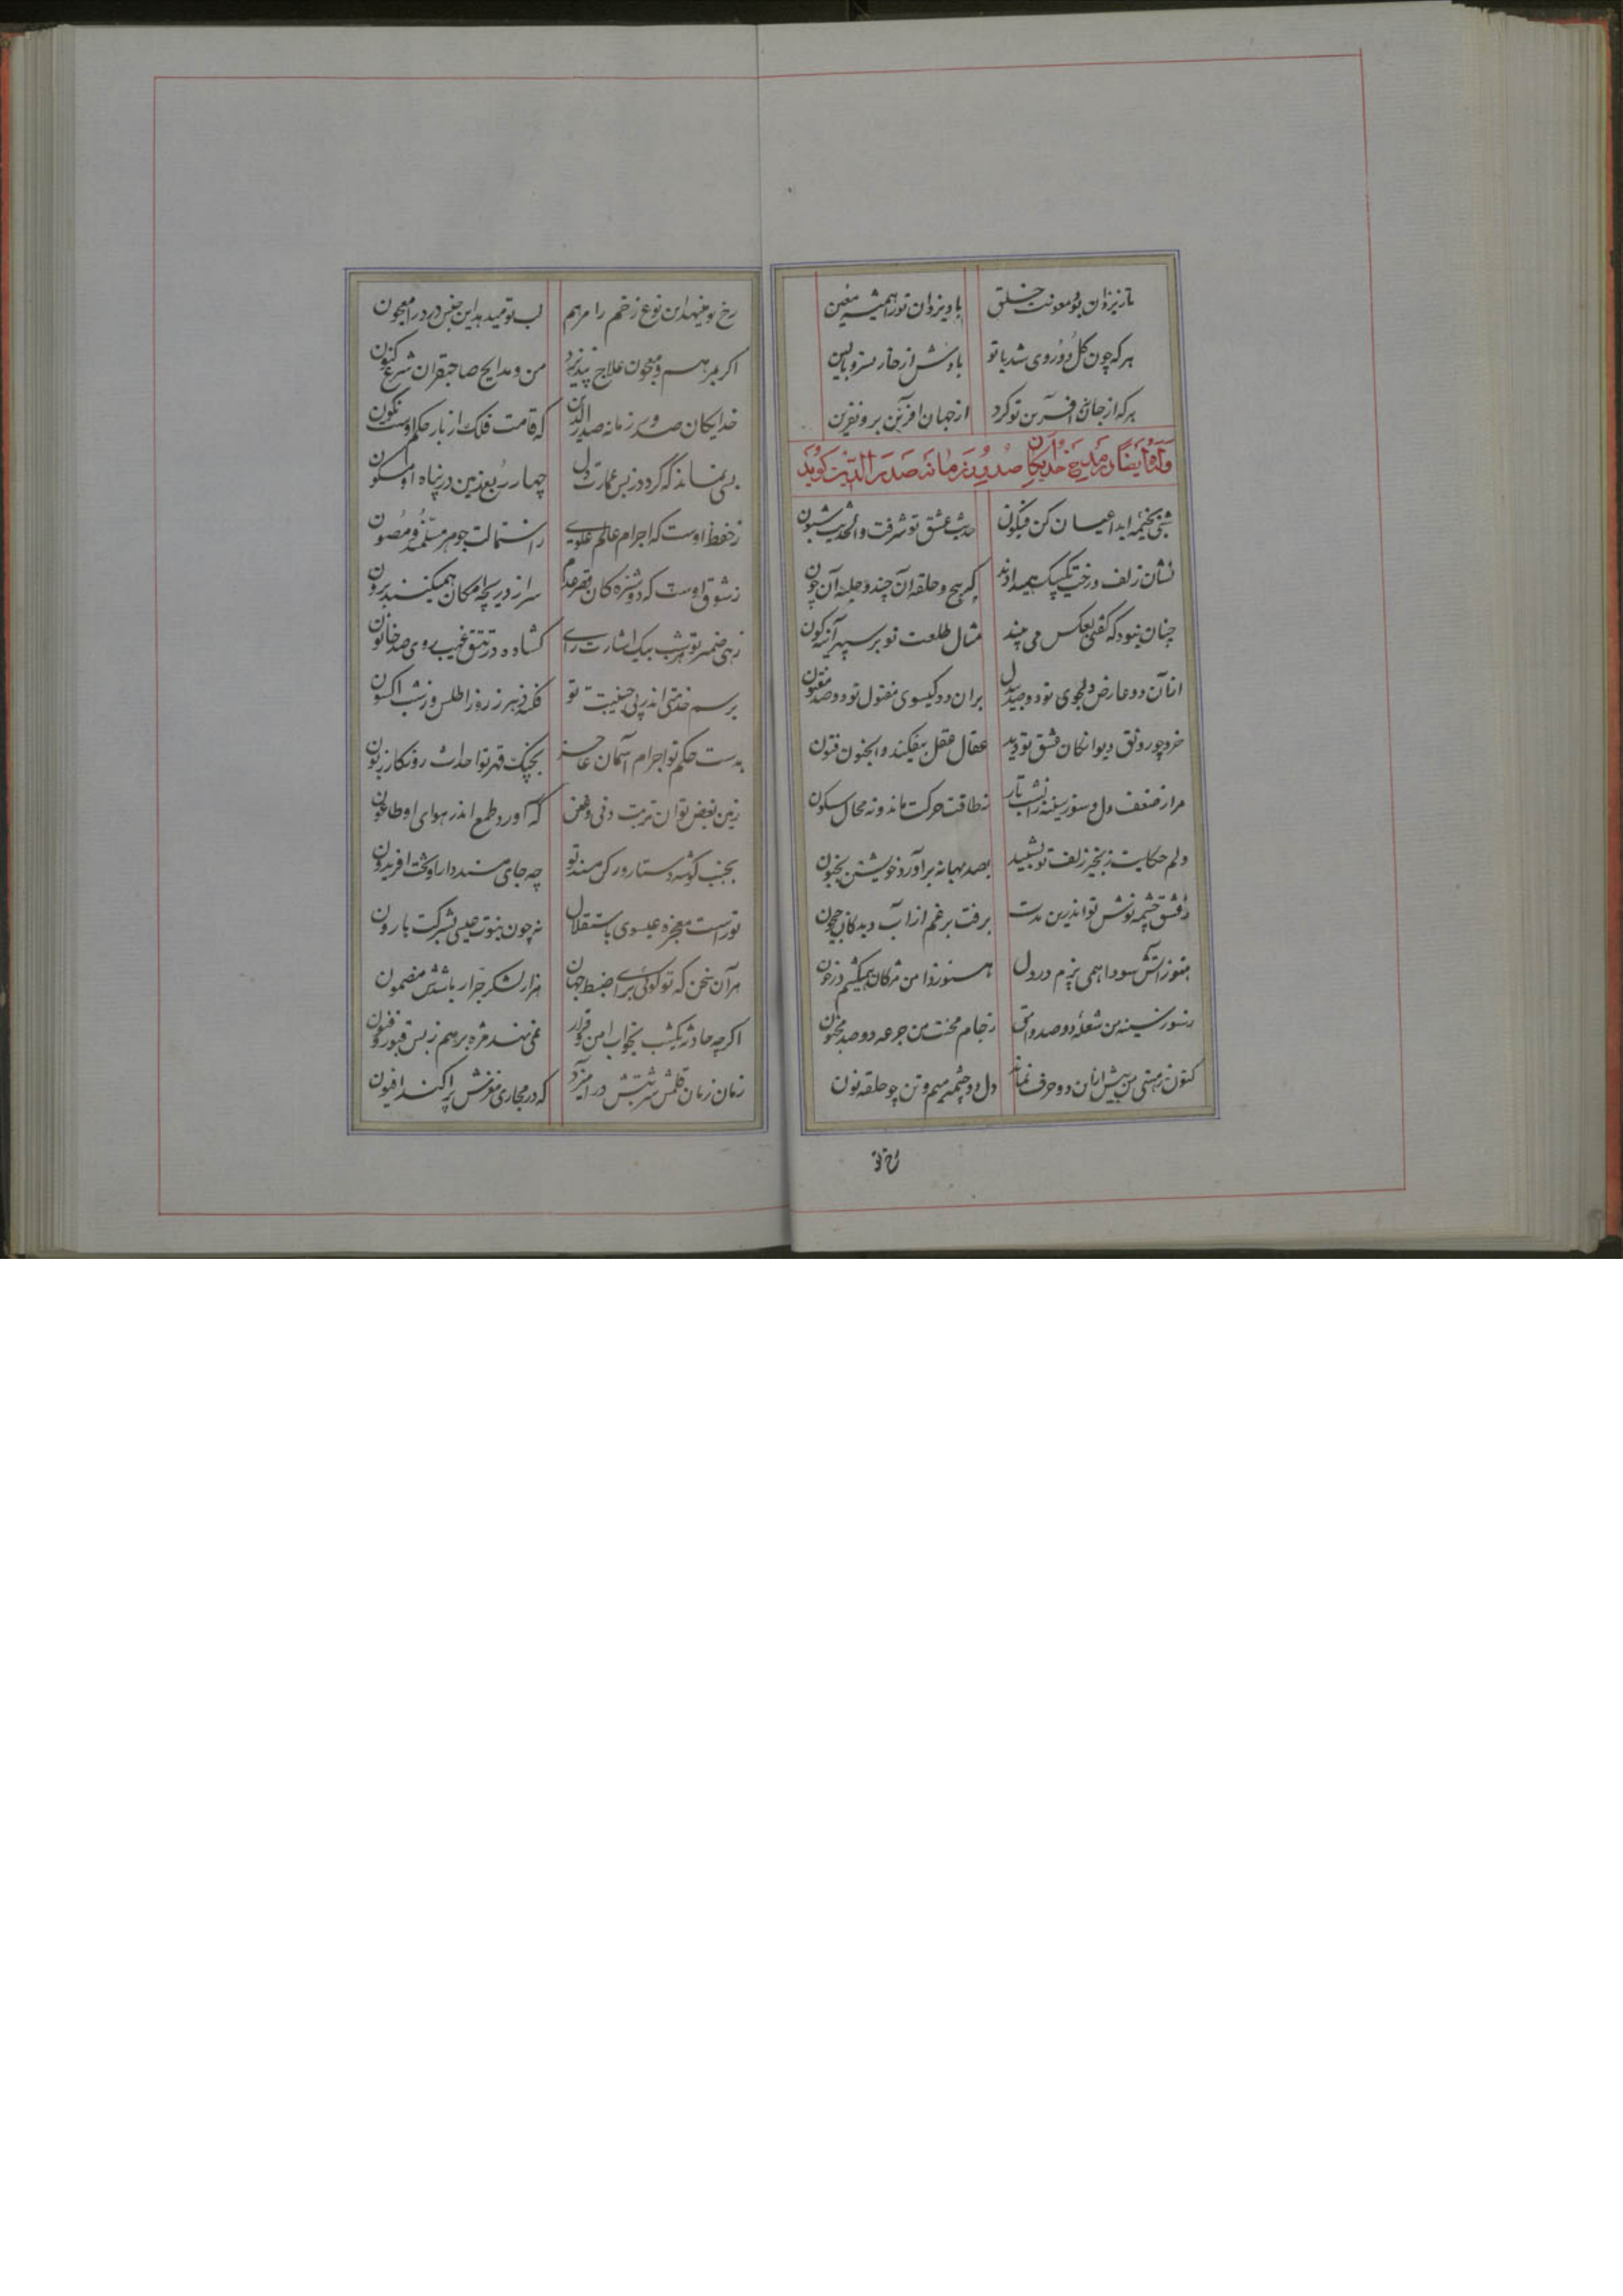 تا ز یزدان بود معونت خلق
باد یزدان ترا همیشه معین
هر که چون گل دو روی شد با تو
بادش از خار بستر و بالین
هر که از جان نه آفرین تو کرد
از جهان آفرین برو نفرین
وله ایضا در مدح خدایکان صدور زمانه صدر الدین کوید
شبی بخیمه ابداعیان کن فیکون
حدیث عشق تو میرفت والحدیث شجون
نشان زلف و رخت یک بیک همیدادند
چنان نبود که نقشی بعکس می بیند
مثال طلعت تو بر سپهر آینه کون
از آن دو عارض دلجوی تو دو صد بیدل
بر آن دو کیسوی مفتول تو دو صد مفتون
خرد چو رونق دیوانکان عشق تو دید
عقال عقل بیفکند والجنون فنون
مرا ز ضعف دل و سوز سینه
نه طاقت حرکت ماند و نه مجال سکون
دلم حکایت زنجیر زلف تو بشنید
بصد بهانه برآورد خویشتن بجنون
ز عشق چشمه نوش تو اندرین مدت
برفت بر رخم از آب دیدکان جیحون
هنوز آتش سودا همی پزم در دل
هنوز دامن مژکان همیکشم در خون
ز سوز سینه من شعله دو صد وامق
ز جام محنت من جرعه دو صد مجنون
کنون ز هستی من بیش از آن دو حرف نماند
دل چو چشمه میم و تن چو حلقه نون
رخ تو
رخ تو می نهد این نوع زخم را مرهم
لب تو میدهد این جنس درد را معجون
اکر بمرهم و معجون علاج نپذیرد
من و مدایح صاحبقران شرع کنون
خدایکان صدور زمانه صدر الدین
که قامت فلک از بار حکم اوست نکون
بسی نماند که کردد ز بس عمارت دل
چهار ربع زمین در پناه او مسکون
ز حفظ اوست که اجرام عالم علوی
ز استمالت جوهر مسلمند و مصون
ز شوق اوست که دوشیزه کان قعر عدم
سر از دریچه امکان همیکنند برون
برسم خدمتی اندر پی جنیبت تو
فکنده دهر ز روز اطلس و ز شب اکسون
بدست حکم تو اجرام آسمان عاجز
بچنک قهر تو احداث روزکار زبون
که آورد طمع اندر هوای او طاعون
بجنب کوشه دستار و رکن مسند تو
چه جای مسند دارا و تخت افریدون
تراست معجزه عیسوی باستقلال
نه چون نبوت عیسی بشرکت هارون
هر آن سخن که تو کوئی برای ضبط جهان
هزار لشکر جرار باشدش مضمون
اکر چه حادثه یکشب بخواب امن و قرار
نمی نهد مژه بر هم ز بس فتور و فتون
زمان زمان قلمش شربتش در آمیزد
که در مجاری مغزش پراکند افیون